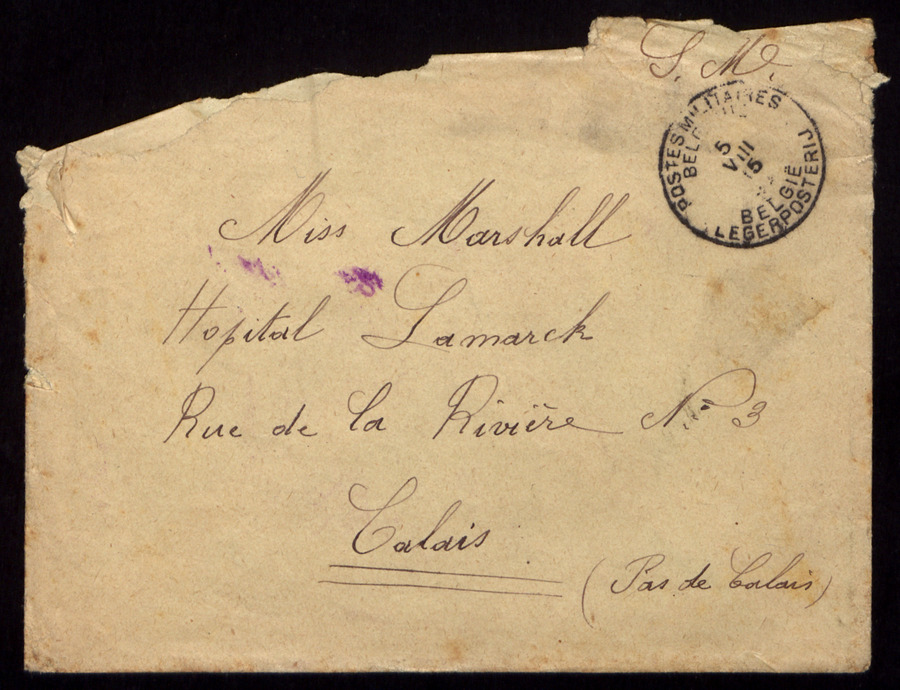 S. M.
POSTES MILITAIRES
BELG
5
VIII
15
BELGIË
LEGERPOSTERIJ
Miss Marshall
Hopital Lamarck
Rue de la Rivière N° 3
Calais
(Pas de Calais)